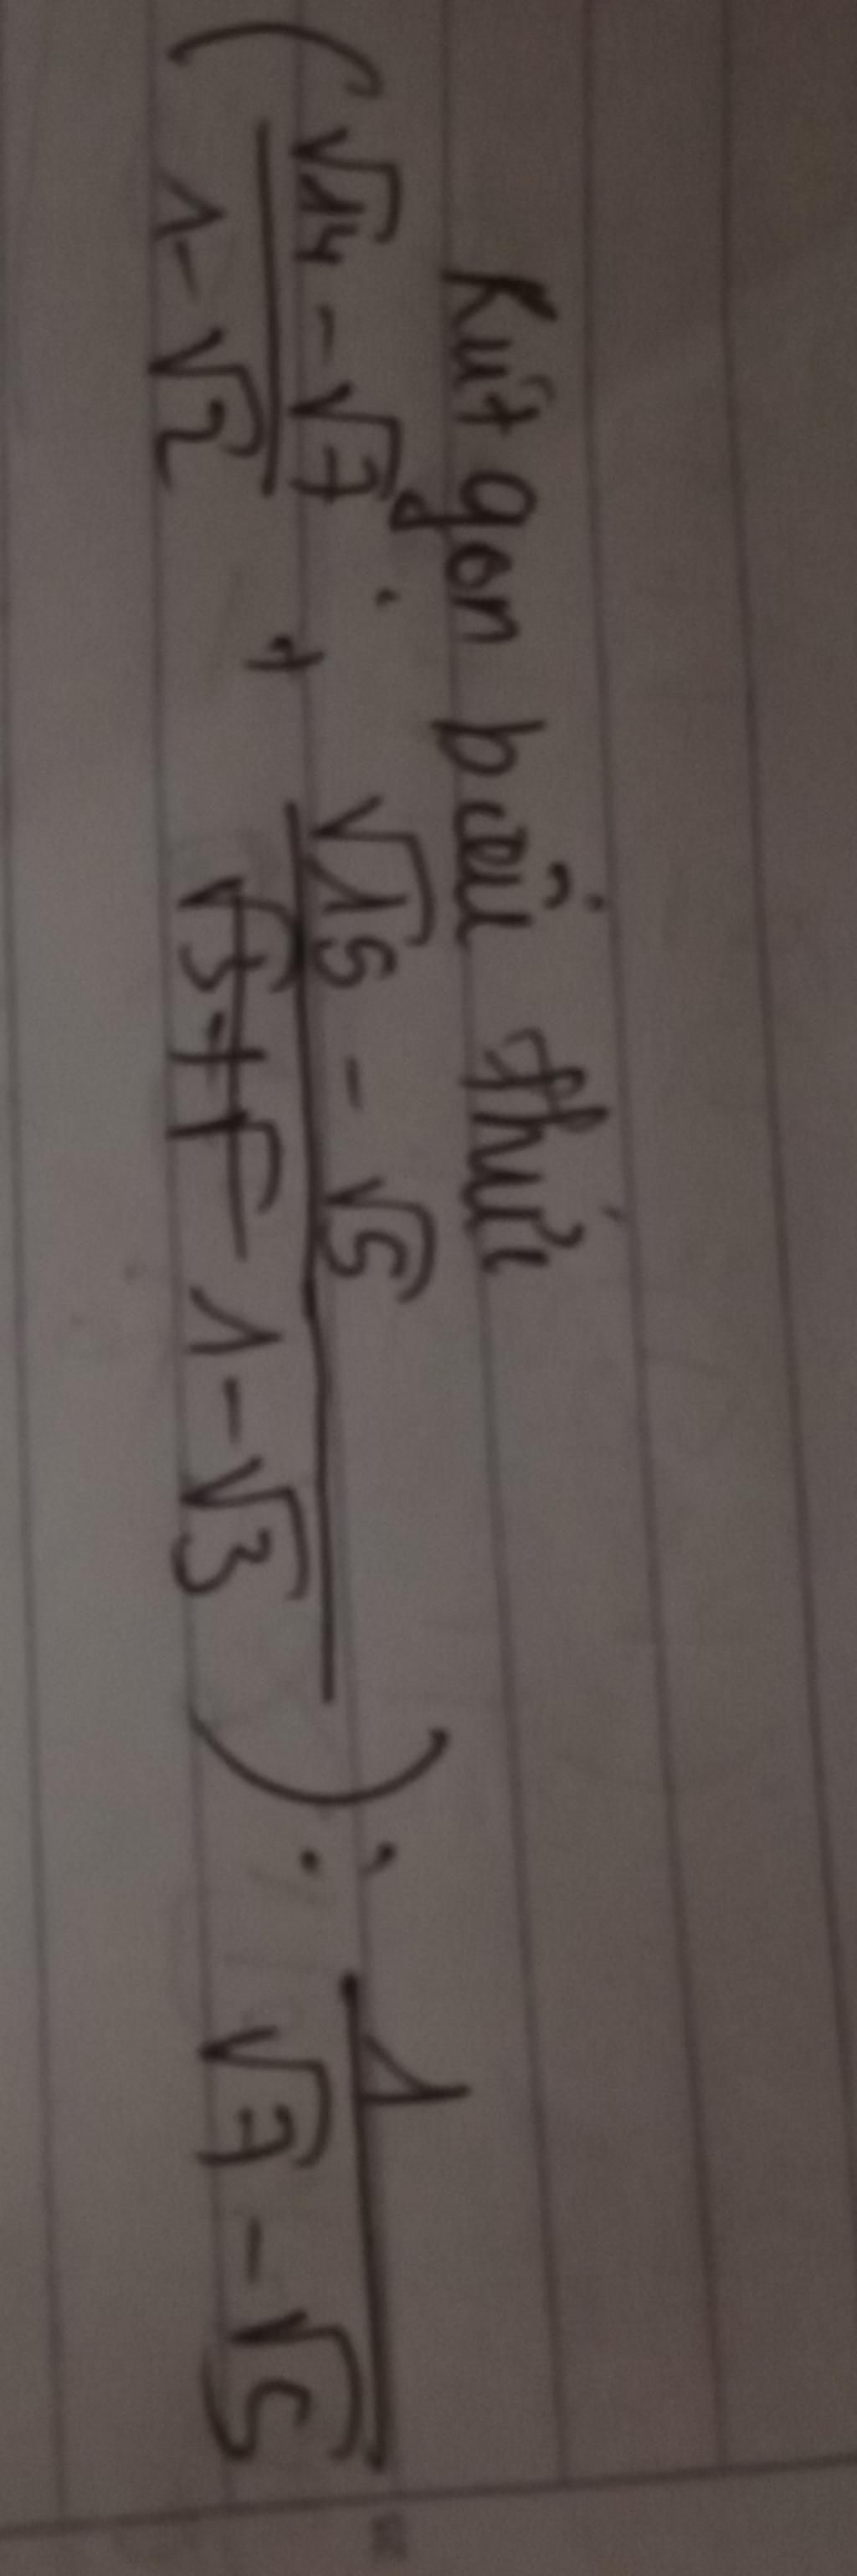 Rút gọn biểu thức
( (√14 - √7) / (1 - √2) + (√15 - √5) / (1 - √3) ) : 1 / (√7 - √5)